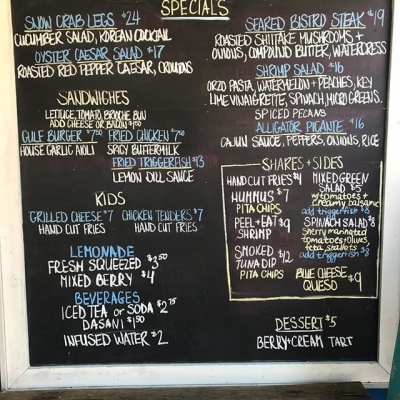 SPECIALS
SNOW CRAB LEGS $24
CUCUMBER SALAD, KOREAN COCKTAIL
OYSTER CAESAR SALAD $17
ROASTED RED PEPPER CAESAR, CROUTONS
SANDWICHES
LETTUCE, TOMATO, BRIOCHE BUN
ADD CHEESE OR BACON $1.50
GULF BURGER $7.50 FRIED CHICKEN $7.50
HOUSE GARLIC AIOLI SPICY BUTTERMILK
FRIED TRIGGERFISH $13
LEMON DILL SAUCE
KIDS
GRILLED CHEESE $7 CHICKEN TENDERS $7
HAND CUT FRIES HAND CUT FRIES
LEMONADE
FRESH SQUEEZED $3.50
MIXED BERRY $4
BEVERAGES
ICED TEA OR SODA $2.75
DASANI $1.50
INFUSED WATER $2
SEARED BISTRO STEAK $19
ROASTED SHIITAKE MUSHROOMS +
ONIONS, COMPOUND BUTTER, WATERCRESS
SHRIMP SALAD $16
ORZO PASTA, WATERMELON + PEACHES, KEY
LIME VINAIGRETTE, SPINACH, MICRO GREENS.
SPICED PECANS
ALLIGATOR PICANTE $16
CAJUN SAUCE, PEPPERS, ONIONS, RICE
SHARES + SIDES
HAND CUT FRIES $4
HUMMUS $7
PITA CHIPS
PEEL + EAT $9
SHRIMP
SMOKED $12
TUNA DIP
PITA CHIPS
MIXED GREEN
SALAD $5
w/tomatoes +
creamy balsamic
add triggerfish $8
SPINACH SALAD $8
sherry marinated
tomatoes + olives,
feta shallots
add triggerfish $8
BLUE CHEESE $9
QUESO
DESSERT $5
BERRY + CREAM TART